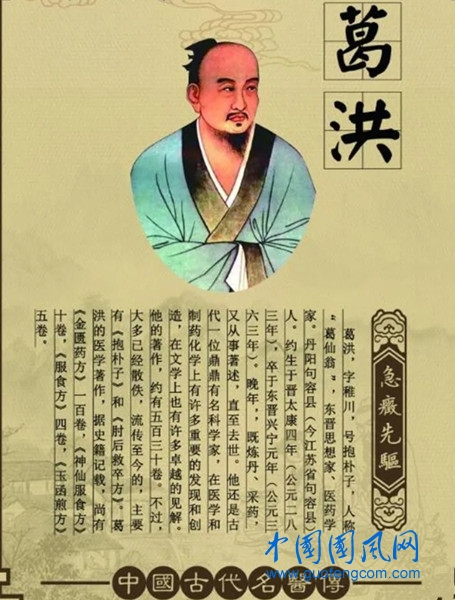 葛洪
急癥先驅
葛洪，字稚川，号抱朴子，人称
“葛仙翁”，东晋思想家、医药学
家。丹阳句容县（今江苏省句容县）
人。约生于晋太康四年（公元二八
三年），卒于东晋兴宁元年（公元三
六三年）。晚年，，既炼丹、采药，
又从事著述，直至去世。他还是古
代一位鼎鼎有名科学家，在医学和
制药化学上有许多重要的发现和创
造，在文学上也有许多卓越的见解。
他的著作，约有五百三十卷。不过，
大多已经散佚，流传至今的，主要
有《抱朴子》和《肘后救卒方》。葛
洪的医学著作，据史籍记载，尚有
《金匮药方》一百卷，《神仙服食方》
十卷，《服食方》四卷，《玉函煎方》
五卷。
中国国风网
www.guofengcom.com
中國古代名醫傳